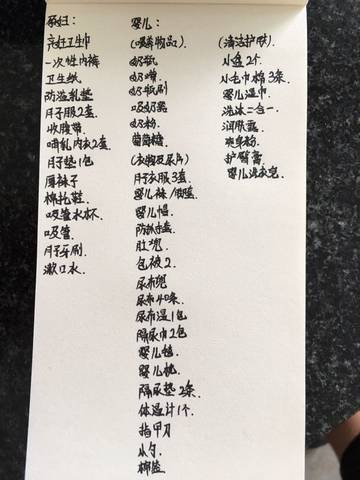 孕妇:
产妇卫生巾
一次性内裤
卫生纸
防溢乳垫
月子服2套
收腹带
哺乳内衣2套
月子垫1包
厚袜子
棉拖鞋
吸管水杯
吸管
月子牙刷
漱口水.
婴儿:
(喂养物品)
奶瓶
奶嘴
奶瓶刷
吸奶器
奶粉
葡萄糖
(衣物及尿片)
月子衣服3套
婴儿袜/脚套
婴儿帽
防抓手套
肚兜
包被2
尿布兜
尿布40条
尿布湿1包
隔尿巾2包
婴儿毯
婴儿枕
隔尿垫2条
体温计1个
指甲刀
小勺
棉签
(清洁护肤)
小盆2个
小毛巾棉3条
婴儿湿巾
洗沐二合一
润肤露
爽身粉
护臀膏
婴儿洗衣皂